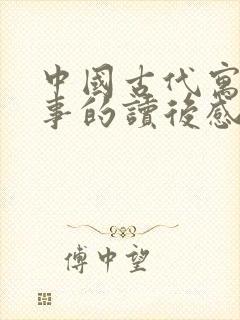 中國古代寓
事的讀後感
傅中望